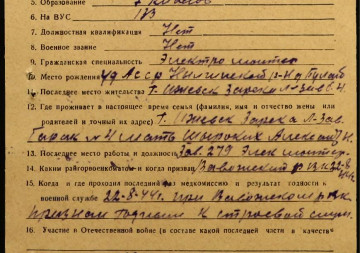 5. Образование 7 классов
6. На ВУС 183
7. Должностная квалификация Нет
8. Военное звание Нет
9. Гражданская специальность Электромонтер
10. Место рождения Уд АССР
11. Последнее место жительства г. Ижевск Зарека
12. Где проживает в настоящее время семья (фамилия, имя и отчество жены или
родителей и точный их адрес) г. Ижевск Зарека
барак №4 мать Широких
13. Последнее место работы и должность Зав. 279 Элек монтер.
14. Каким райгорвоенкоматом и когда призван
15. Когда и где проходил последний раз медкомиссию и результат годности к
военной службе 22-8-44г. при
признан годным к строевой служ.
16. Участие в Отечественной войне (в составе какой последней части и в качестве